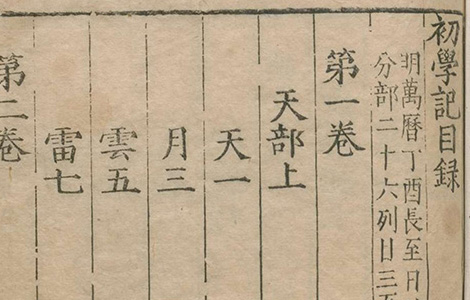 初學記目錄
明萬曆丁酉長至日
分部二十六列目三百
第一卷
天部上
天一
月三
雲五
雷七
第二卷